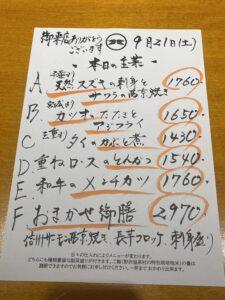 御来店ありがとうございます 9月21日(土)
~本日の主菜~
A 天然スズキの刺身と
サワラの西京焼き 1760-
B カツオのたたきと
アジフライ 1650-
C 三重産 タイのかぶと煮 1430-
D 重ねロースのとんかつ 1540-
E. 和牛のメンチカツ 1760
F おまかせ御膳 2970
信州サーモン西京焼き、長芋コロッケ、刺身盛り
日々の仕入れによりメニューが変わります。